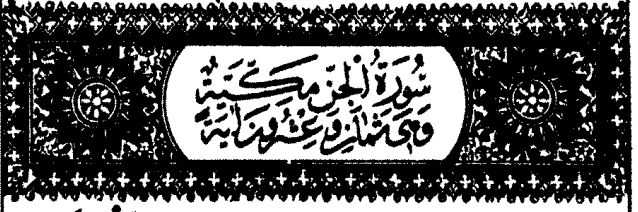 سُورَةُ الْجِنِّ مَكِّيَّةٌ
وَهِيَ ثَمَانٍ وَعِشْرُونَ آيَةً